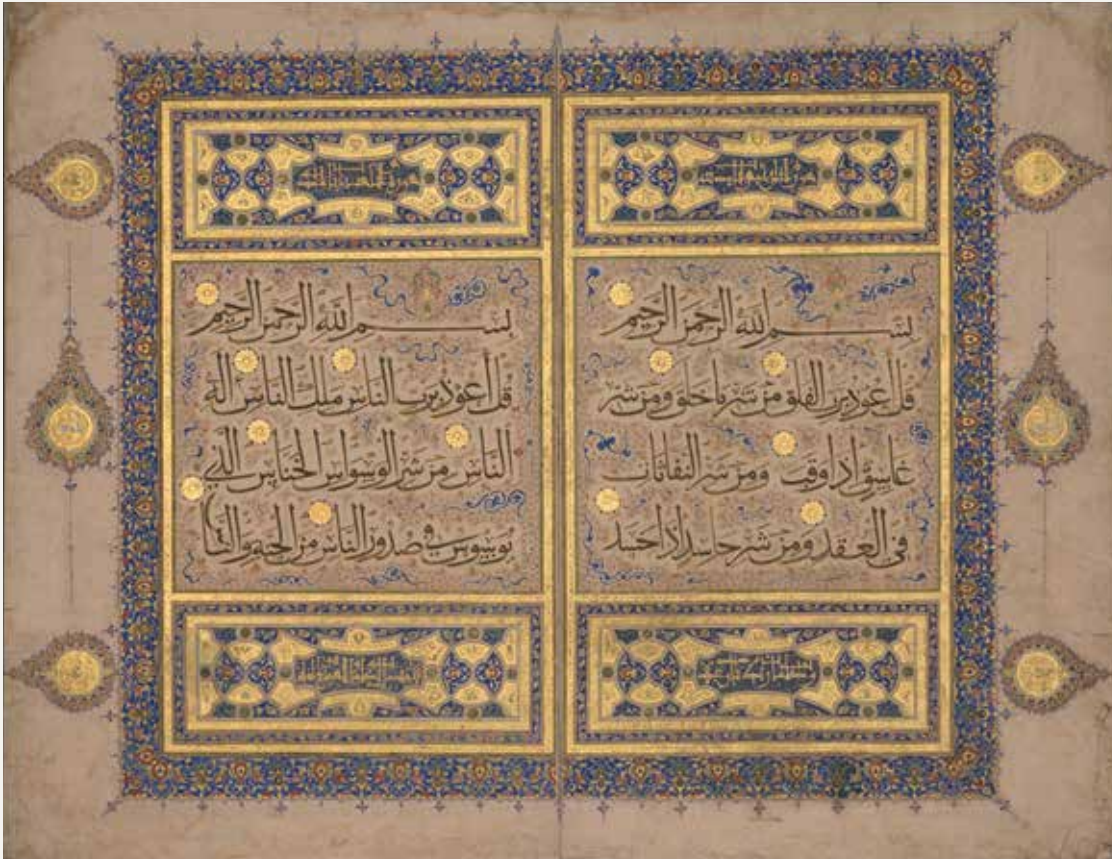 بسم الله الرحمن الرحيم
قل اعوذ برب الفلق من شر ما خلق ومن شر
غاسق اذا وقب ومن شر النفاثات
فى العقد ومن شر حاسد اذا حسد
بسم الله الرحمن الرحيم
قل اعوذ برب الناس ملك الناس اله
الناس من شر الوسواس الخناس الذى
يوسوس فى صدور الناس من الجنه والناس